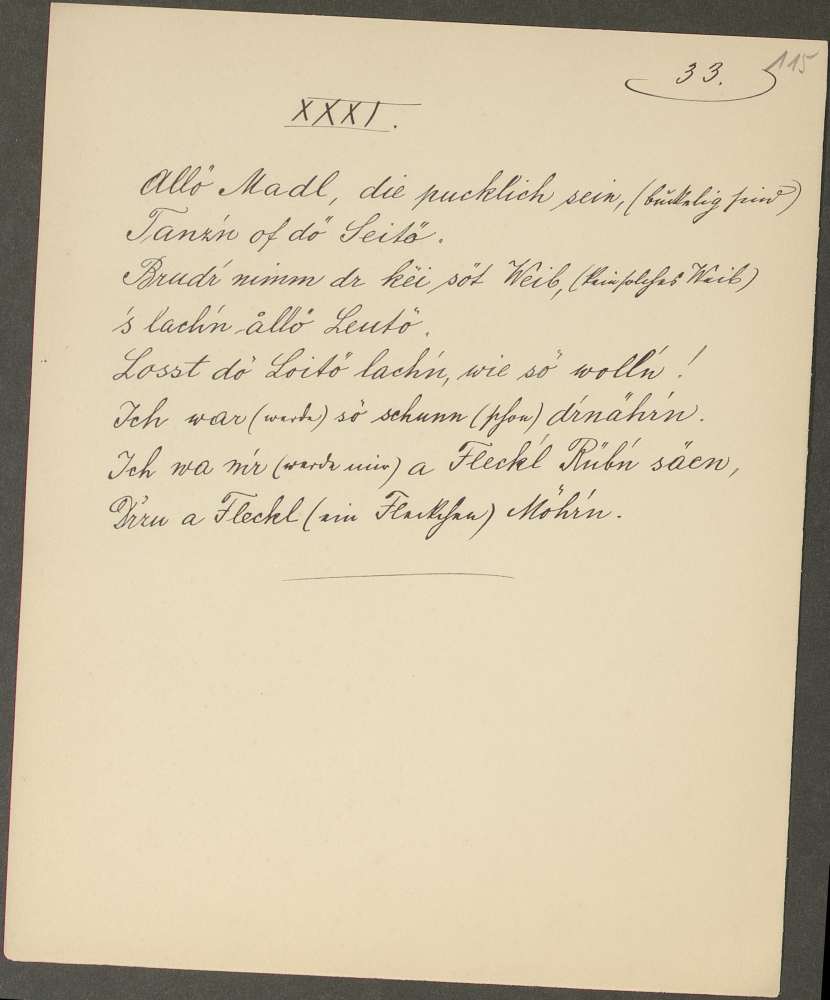 115
33.
XXXI.
Allö Madl, die pucklich sein, (buckelig sind)
Tanz'n of dö Seitö.
Brudr nimm dr këi söt Weib, (kein solches Weib)
's lach'n ållö Leutö.
Losst dö Loitö lach'n, wie sö woll'n!
Ich war (werde) sö schunn (schon) d'rnähr'n.
Ich wa m'r (werde mir) a Fleck'l Rüb'n säen,
D'rzu a Fleckl (ein Fleckchen) Möhr'n.